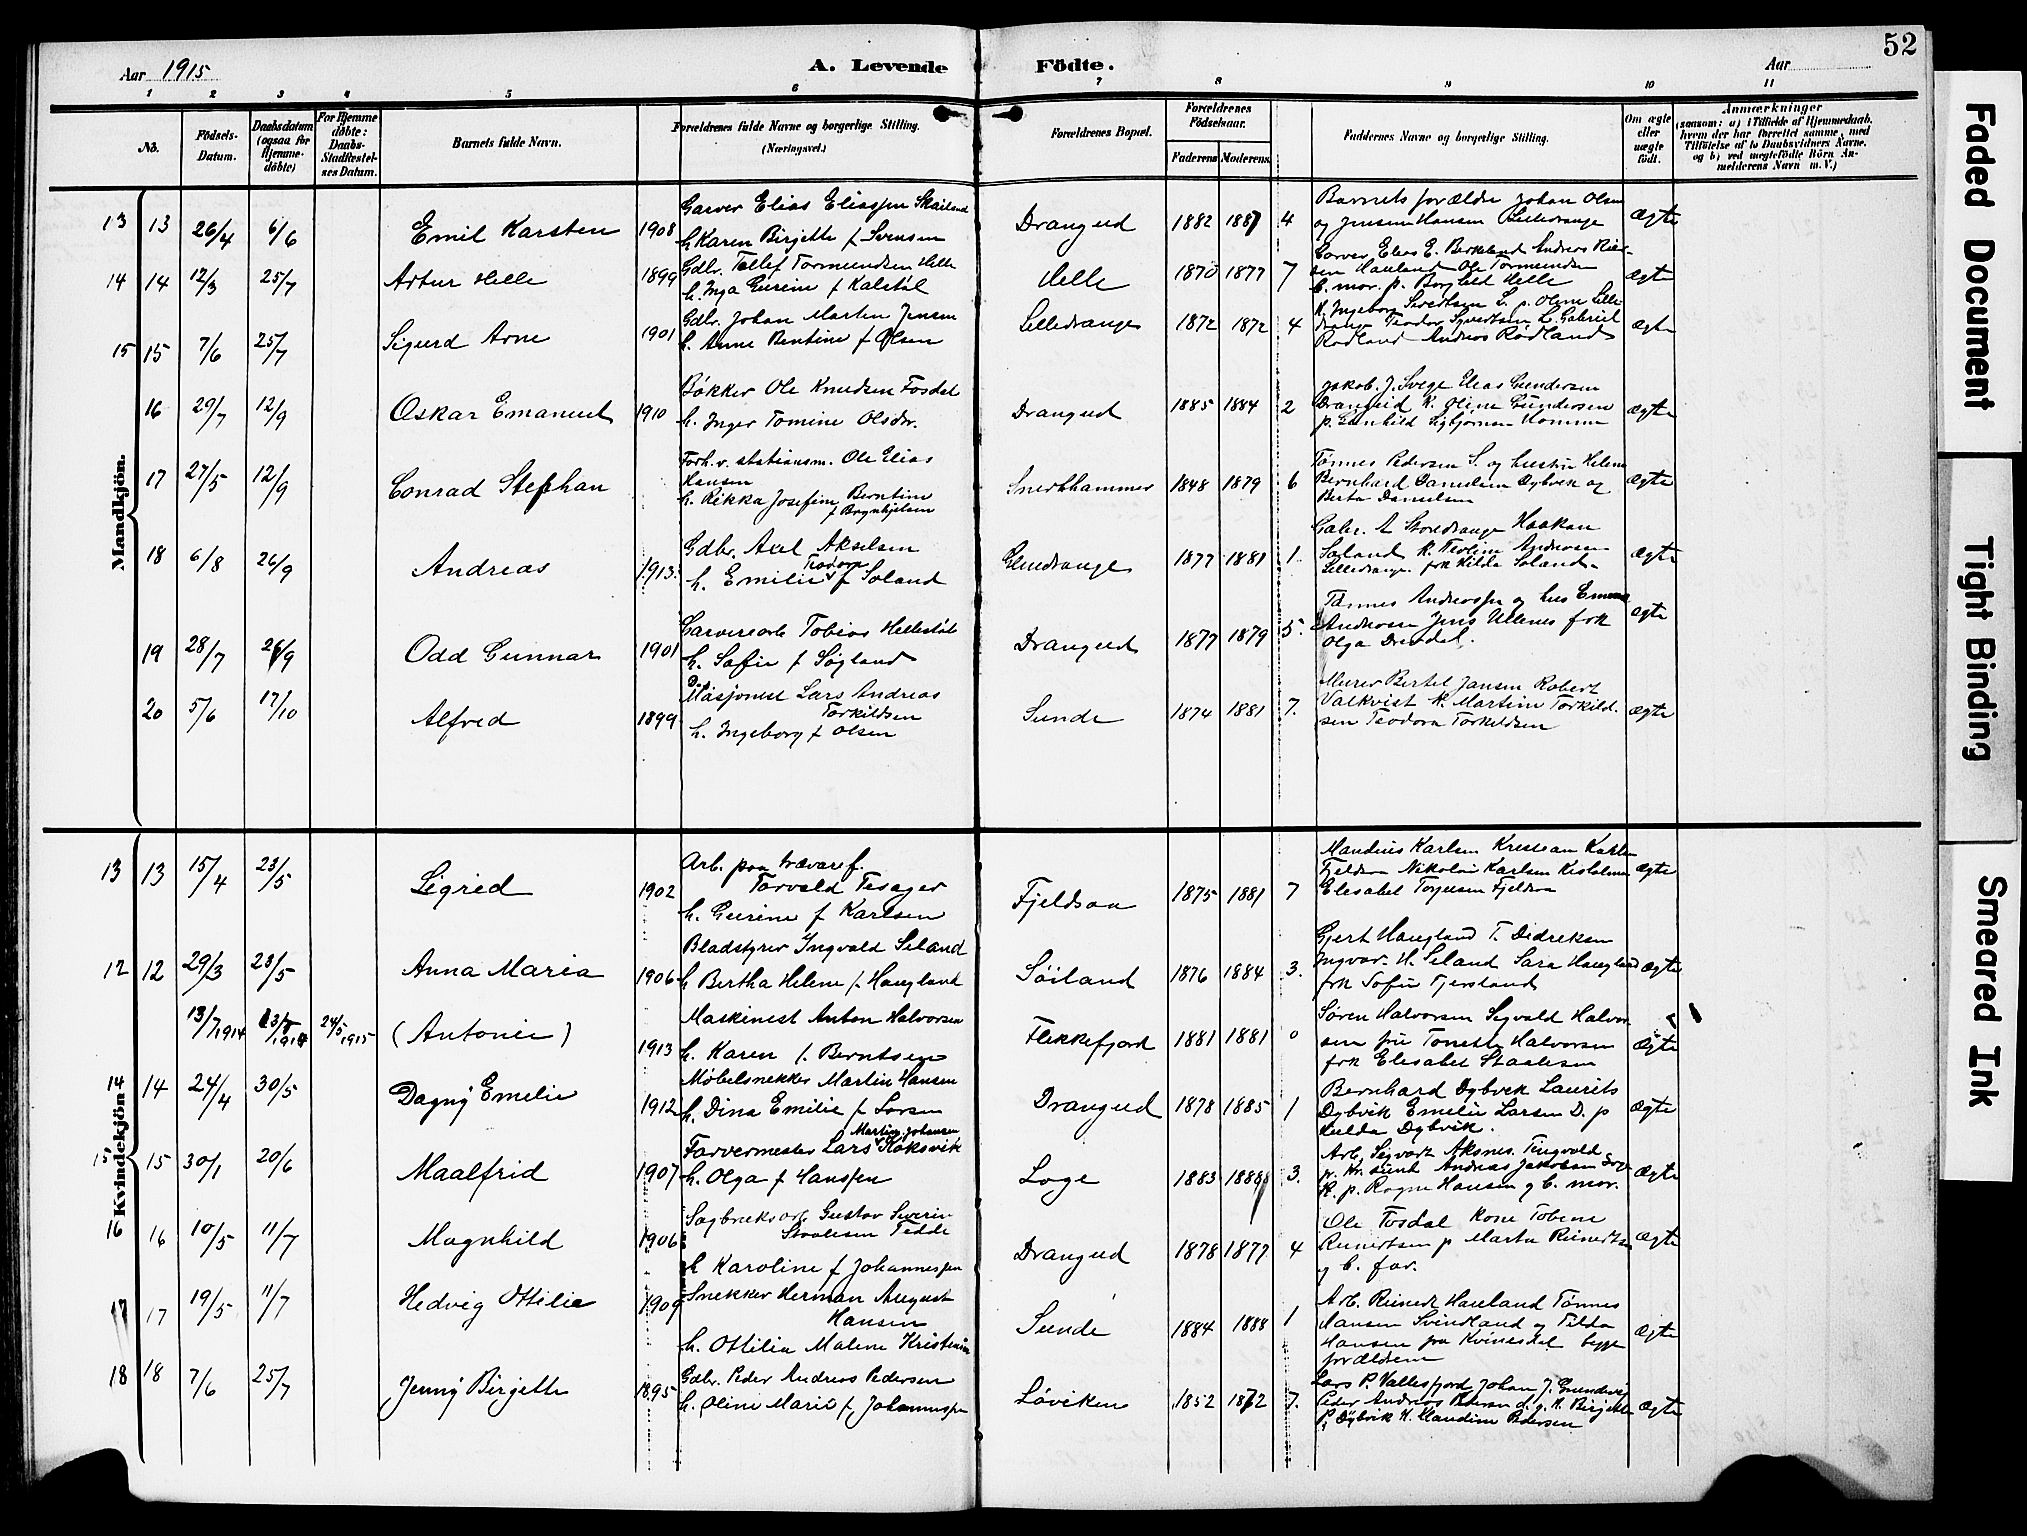 52
Aar 1915
A. Levende
Födte.
Aar
1 2 3 4 5 6 7 8 9 10 11
No.
Födsels-Datum.
Daabsdatum (ogsaa for Hjemme-döbte)
For Hjemme döbte: Daabs-Stadfæstel-ses Datum.
Barnets fulde Navn.
Forældrenes fulde Navne og borgerlige Stilling.
(Næringsvei.)
Forældrenes Bopæl.
Forældrenes Födselsaar.
Faderens Moderens
Faddernes Navne og borgerlige Stilling.
Om ægte eller uægte födt.
Anmærkninger
(saasom: a) i Tilfælde af Hjemmedaab, hvem der har forrettet samme, med Tilföielse af to Daabsvidners Navne, og b) ved uegtefödte Börn An-melderens Navn m. V.)
Mandkjön.
13 13 26/4 6/6 Emil Karsten 1908
Garver Elias Eliassen Skailand
h. Karen Birgitte f Svensen
Drangeid 1882 1887 4
Barnets forældre Johan Olsen
og Jensine Hansen Lilledrange
Ægte
14 14 12/3 25/7 Artur Helle 1899
Gdbr. Tellef Tormundsen Helle
h. Inga Gurine f Kalstøl
Helle 1870 1877 7
Garver Elias E. Birkeland Andreas
Haaland Ole Tormundsen
b. mor. p. Borghild Helle
Ægte
15 15 7/6 25/7 Sigurd Arne 1901
Gdbr. Johan Martin Jensen
h. Anne Bentine f Olsen
Lilledrange 1872 1872 4
K. Ingeborg Sivertsen L. p. Oline Lille
drange Teodor Syvertsen L. Gabriel
Rødland Andreas Rødland
Ægte
16 29/7 12/9 Oskar Emanuel 1910
Bøkker Ole Knudsen Fosdal
h. Inger Tomine Olsdtr.
Drangeid 1885 1884 2
Jakob J. Svege Elias Gundersen
Drangeid K. Oline Gundersen
p. Gunhild Sigbjørnsen Homme
Ægte
17 27/5 12/9 Conrad Stephan
Forh.v. stationsm. Ole Elias
Hansen
h. Rikka Josefine Berntine
f Brynhjelsen
Snerthammer 1848 1879 6
Tønnes Pedersen S. og hustru Helene
Bernhard Danielsen Dybvik og
Berta Danielsen
Ægte
18 6/8 26/9 Andreas 1913
Gdbr. Axel Akselsen
Teodora
h. Emilie f Soland
Glendrange 1877 1881 1
Gabr. A Storedrange Haakon
Soland K. Teoline Andersen
Lilledrange. frk Hilda Soland
Ægte
19 28/7 26/9 Odd Gunnar 1901
Garverarb Tobias Hellestøl
h. Sofie f Søyland
Drangeid 1877 1879 5.
Tønnes Andreassen og hus Emma
Andersen Jens Ullenes frk
Olga Drevdal.
Ægte
20 5/6 17/10 Alfred 1899
Lars Andreas
Torkildsen
h. Ingeborg f Olsen
Sunde 1874 1881 7.
Murer Bertel Jansen Robert
Valkvist K. Martine Torkild
sen Teodora Torkildsen
Ægte
Kvindekjön
13 13 15/4 23/5 Sigrid 1902
Arb. paa trævaref.
Torvald Tesager
h. Gurine f Karlsen
Fjeldsaa 1875 1881 7
Maudius Karlsen Kristian Karlsen
Fjeldsaa Nikolai Karlsen
Elisabet Torjusen Fjeldsaa
Ægte
12 12 29/3 23/5 Anna Maria 1906
Bladstyrer Ingvald Seland
h Bertha Helene f. Haugland
Søiland 1876 1884 3.
Gjert Haugland T. Didreksen
Ingvar H. Seland Sara Haugland
frk Sofie Tjersland
Ægte
13/7 1914 1914 24/5 1915 (Antonie) 1913
Maskinist Anton Halvorsen
h. Karen f. Berntsen
Flekkefjord 1881 1881 0
Søren Halvorsen Sigvald Halvor
sen fru Tonette Halvorsen
frk Elisabet Staalesen
Ægte
14 14 24/4 30/5 Dagny Emelie 1912
Møbelsnekker Martin Hansen
h. Dina Emilie f Larsen
Drangeid 1878 1885 1
Bernhard Dybvik Laurits
Dybvik Emelie Larsen D. p
Hulda Dybvik.
Ægte
15 15 30/1 20/6 Maalfrid 1907
Martin Johansen
Farvermester Lars Kaksvik
h. Olga f Hanssen
Loge 1883 1888 3.
Arb. Sigvart Aksnes. Tingvold
Andreas Jakobsen
K. p. Ragna Hansen g b. mor.
Ægte
16 16 10/5 11/7 Magnhild 1906
Sagbruksarb Gustav Severin
Staalesen Fedde
h Karoline f Johannessen
Drangeid 1878 1877 4
Ole Fosdal Kone Tobine
Reinertsen p Marta Reinertsen
g b. far.
Ægte
17 17 19/5 11/7 Hedvig Ottilie 1909
Snekker Herman August
Hansen
h. Ottilia Malene Kristensen
Sunde 1884 1888 1
Arb. Reinert Haaland Tønnes
Hansen Svindland og Tilda
Hansen fra Kvinesdal begge
forældrene
Ægte
18 18 7/6 25/7 Jenny Birgitte 1895
Gdbr. Peder Andreas Pedersen
h. Oline Marie f Johannessen
Løviken 1852 1872 7.
Lars P. Vallesfjord Johan J.
Peder Andreas Pedersen d.y. K. Birgitte
P. Dybvik K. Klaudine Pedersen
Ægte
Faded Document
Tight Binding
Smeared Ink